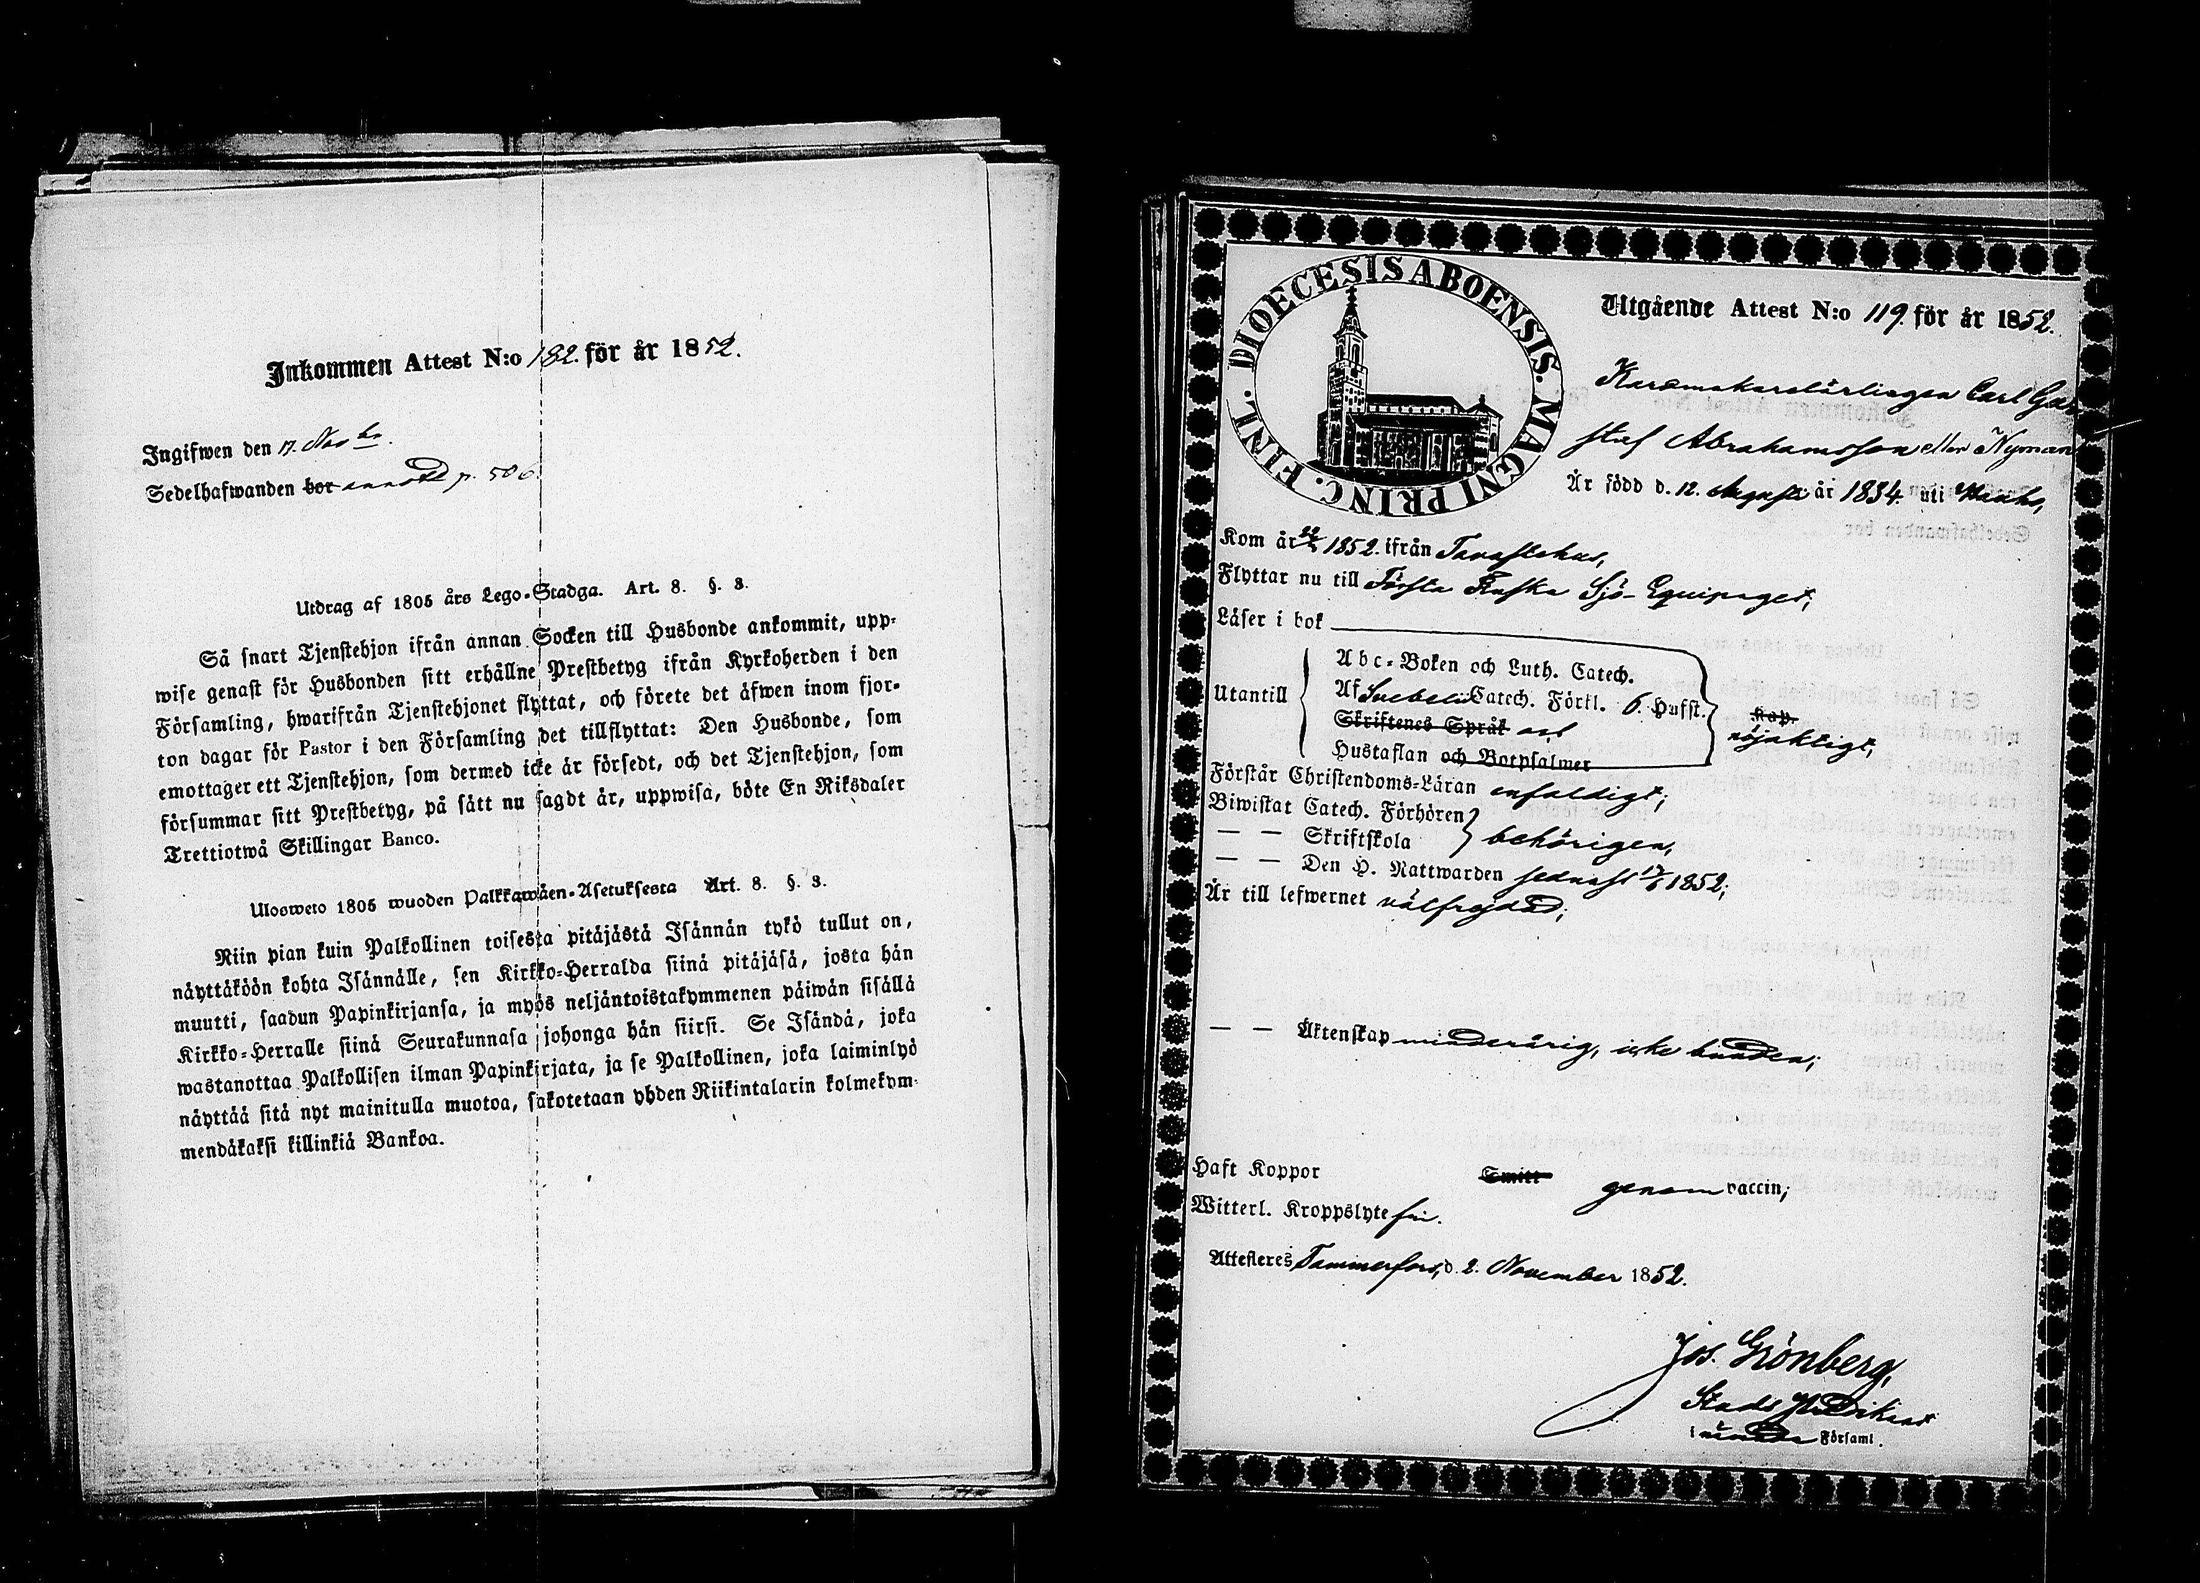 Inkommen Attest N:o 182. för år 1852.
Ingifwen den 17. Nov br.
Sedelhafwanden bor annotd p. 506.
Utdrag af 1805 års Lego-Stadga. Art. 8. §. 3.
Så snart Tjenstehjon ifrån annan Socken till Husbonde ankommit, upp-
wise genast för Husbonden sitt erhållne Prestbetyg ifrån Kyrkoherden i den
Församling, hwarifrån Tjenstehjonet flyttat, och förete det äfwen inom fjor-
ton dagar för Pastor i den Församling det tillflyttat: Den Husbonde, som
emottager ett Tjenstehjon, som dermed icke är försedt, och det Tjenstehjon, som
försummar sitt Prestbetyg, på sätt nu sagdt är, uppwisa, böte En Riksdaler
Trettiotwå Skillingar Banco.
Ulosweto 1805 wuoden Palkkawäen-Asetuksesta Art. 8. §. 3.
Niin pian kuin Palkollinen toisesta pitäjästä Isännän tykö tullut on,
näyttäköön kohta Isännälle, sen Kirkko-Herralda siinä pitäjäsä, josta hän
muutti, saadun Papinkirjansa, ja myös neljäntoistakymmenen päiwän sisällä
Kirkko-Herralle siinä Seurakunnasa johonga hän siirsi. Se Isändä, joka
wastanottaa Palkollisen ilman Papinkirjata, ja se Palkollinen, joka laiminlyö
näyttää sitä nyt mainitulla muotoa, sakotetaan yhden Riikintalarin kolmekym-
mendäkaksi killinkiä Bankoa.
DIOECESIS ABOENSIS. MAGNI PRINC. FINL.
Utgående Attest N:o 119. för år 1852.
Karamakarelärlingen Carl Gu-
staf Abrahamsson eller Nyman
Är född d. 12. Augusti år 1834. uti
Kom år 1852. ifrån Tavastehus,
Flyttar nu till Första Finska Sjö-Equipaget;
Läser i bok
Abc-Boken och Luth. Catech.
Utantill Af Svebelii Catech. Förkl. 6. Hufst. Kap.
Skriftenes Språk och nöjaktigt,
Hustaflan och Botpsalmer
Förstår Christendoms-Läran enfaldigt;
Biwistat Catech. Förhören
— — Skriftskola behörigen,
— — Den H. Nattwarden sednast 1852;
Är till lefwernet välfrejdad;
— — Äktenskap minderårig, icke bunden;
Haft Koppor Smitt genom vaccin;
Witterl. Kroppslyte fri.
Attesteres Tammerfors, d. 2. November 1852.
Jos. Grönberg,
Stads Predikant
i Församl.